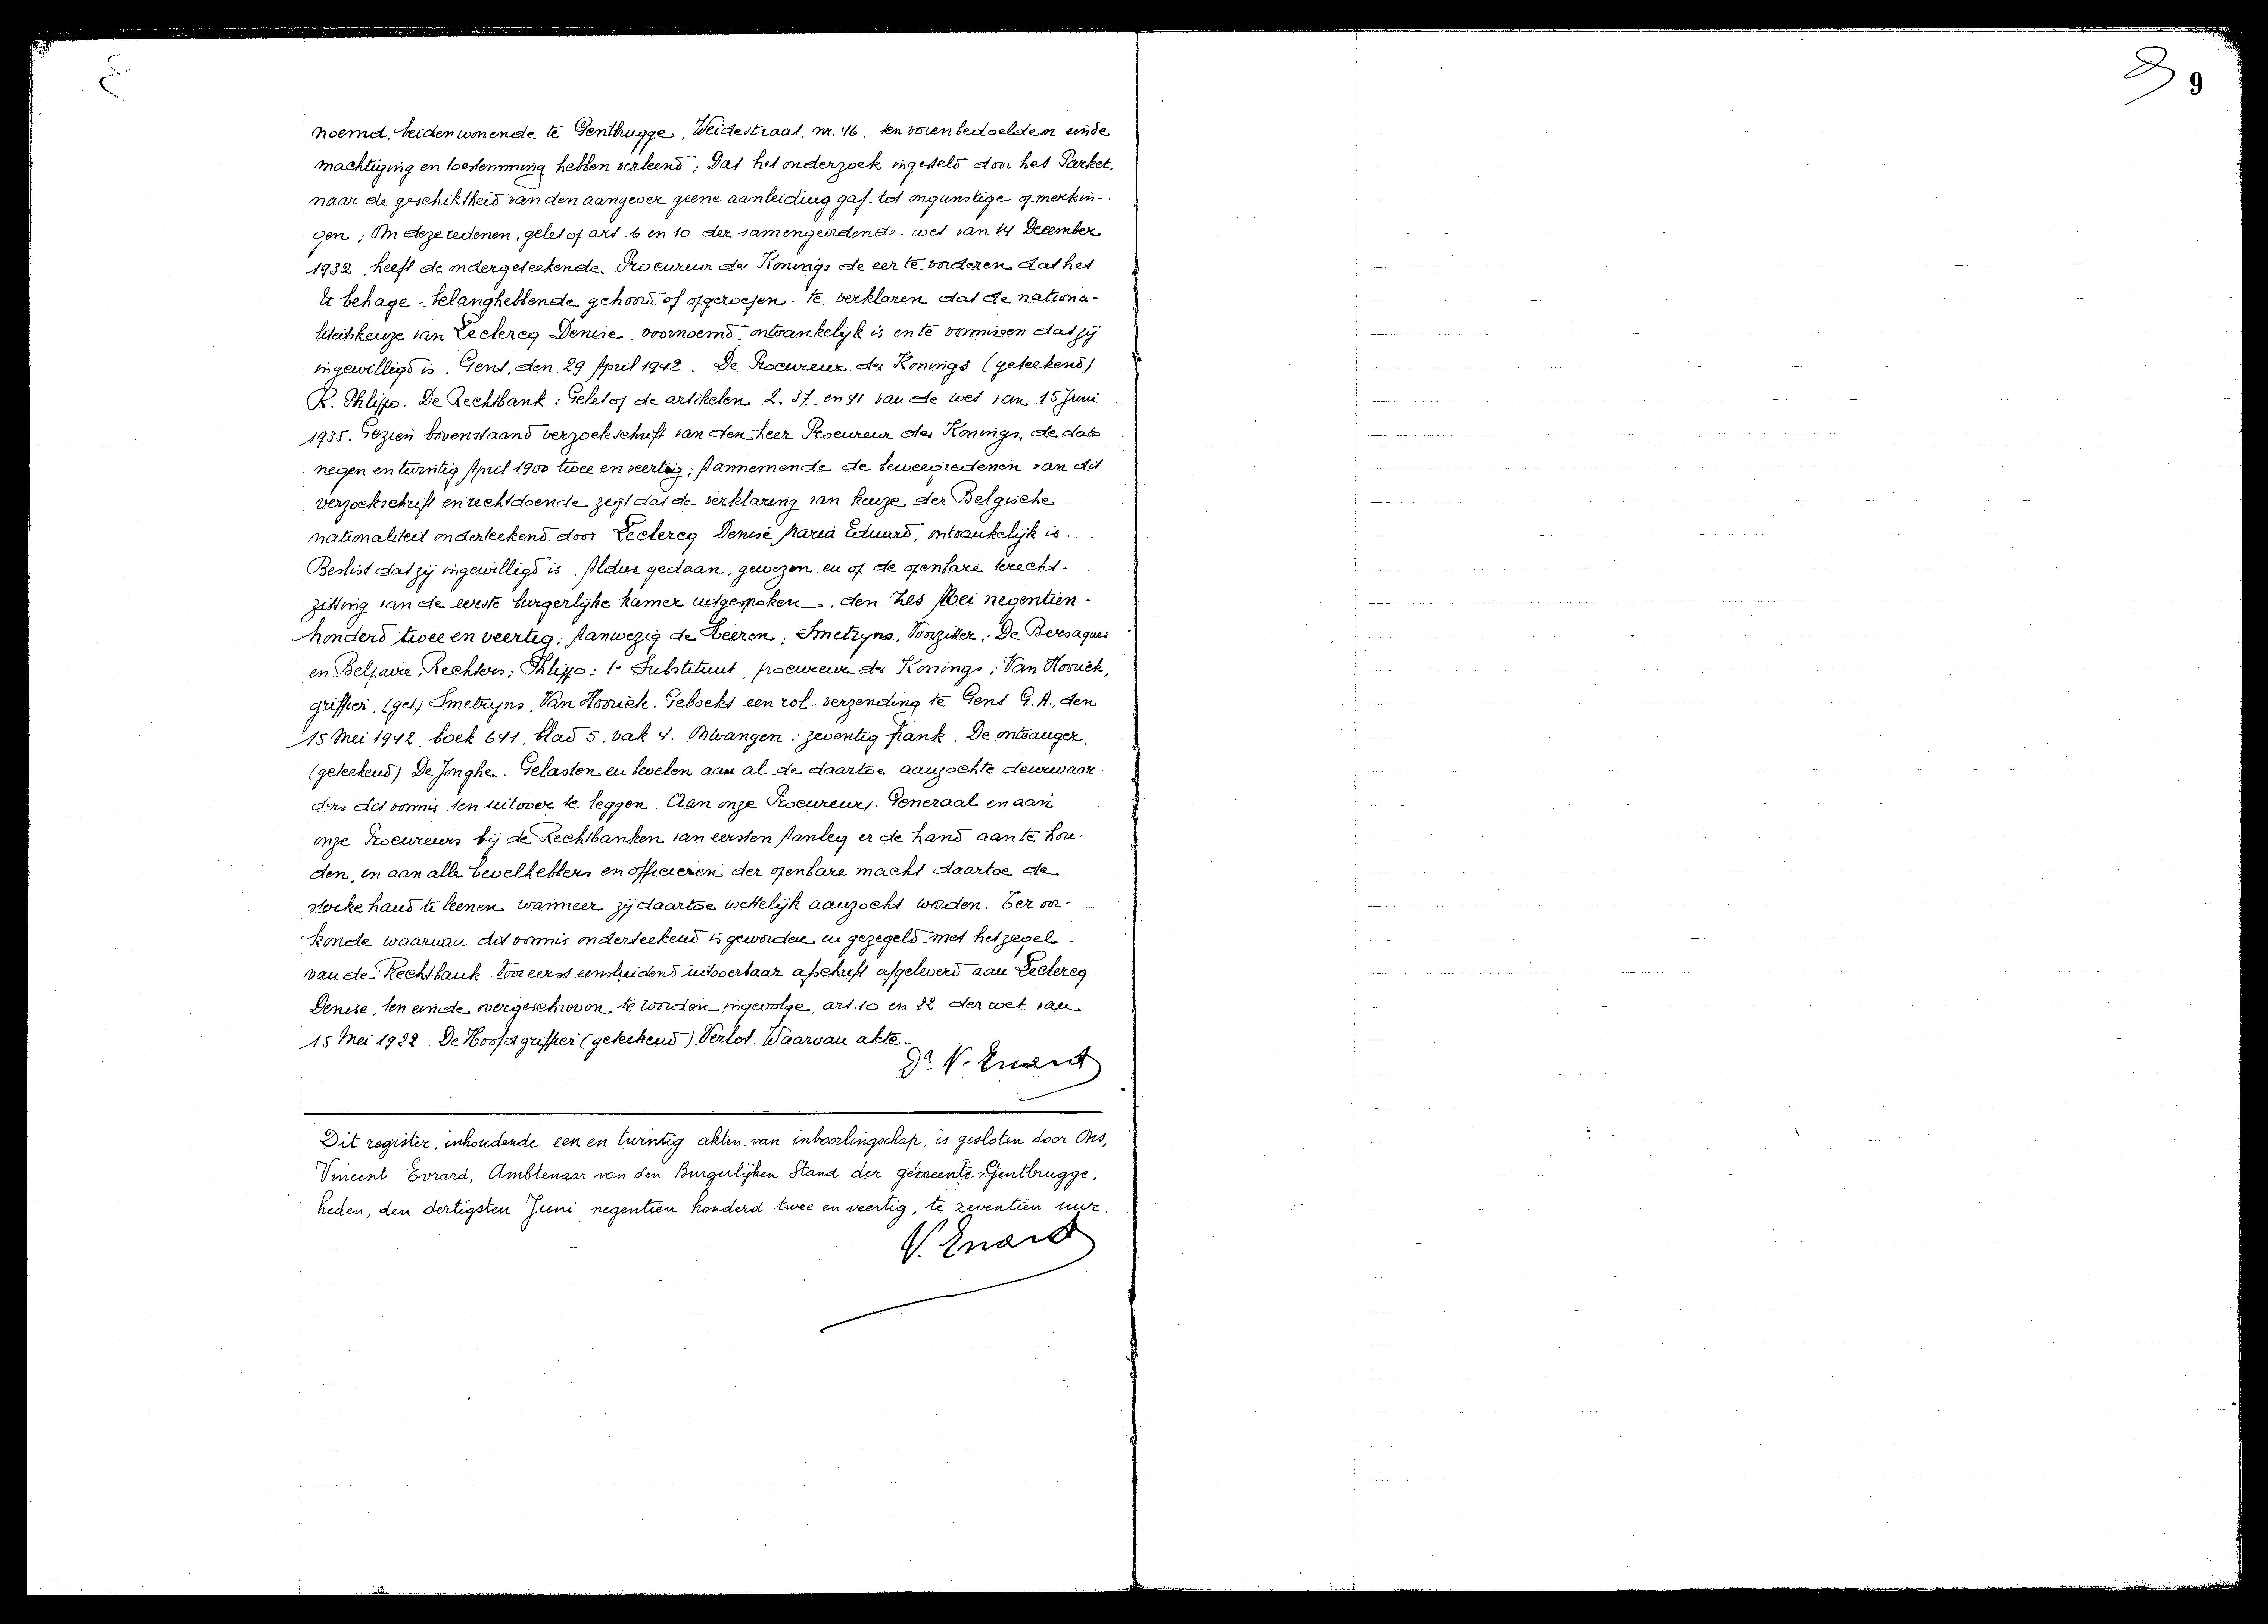 9
noemd, beiden wonende te Gentbrugge, Weidestraat, nr. 46, ten vorenbedoelden einde
machtiging en toestemming hebben verleend; Dat het onderzoek ingesteld door het Parket,
naar de geschiktheid van den aangever geene aanleiding gaf tot ongunstige opmerkin-
gen; Om deze redenen, gelet op art. 6 en 10 der samengeordende wet van 14 December
1932, heeft de ondergeteekende Procureur des Konings de eer te vorderen dat het
U behage - belanghebbende gehoord of opgeroepen - te verklaren dat de nationa-
liteitskeuze van Leclercq Denise, voornoemd, ontvankelijk is en te vonnissen dat zij
ingewilligd is. Gent, den 29 April 1942. De Procureur des Konings (geteekend)
R. Phlippo. De Rechtbank: Gelet op de artikelen 2, 37 en 41 van de wet van 15 Juni
1935. Gezien bovenstaand verzoekschrift van den heer Procureur des Konings, de dato
negen en twintig April 1900 twee en veertig; Aannemende de beweegredenen van dit
verzoekschrift en rechtdoende zegt dat de verklaring van keuze der Belgische
nationaliteit onderteekend door Leclercq Denise Maria Eduard, ontvankelijk is.
Beslist dat zij ingewilligd is. Aldus gedaan, gewezen en op de openbare terecht-
zitting van de eerste burgerlijke kamer uitgesproken, den zes Mei negentien-
honderd twee en veertig; Aanwezig de Heeren: Smetryns, Voorzitter; De Bersaques
en Belpaire, Rechters; Phlippo: 1e Substituut procureur des Konings; Van Hoorick,
griffier. (get.) Smetryns, Van Hoorick. Geboekt een rol - verzending te Gent G.A., den
15 Mei 1942, boek 641, blad 5, vak 4. Ontvangen: zeventig frank. De ontvanger,
(geteekend) De Jonghe. Gelasten en bevelen aan al de daartoe aanzochte deurwaar-
ders dit vonnis ten uitvoer te leggen. Aan onze Procureurs-Generaal en aan
onze Procureurs bij de Rechtbanken van eersten Aanleg er de hand aan te hou-
den, en aan alle bevelhebbers en officieren der openbare macht daartoe de
sterke hand te leenen wanneer zij daartoe wettelijk aanzocht worden. Ter oor-
konde waarvan dit vonnis onderteekend is geworden en gezegeld met het zegel
van de Rechtbank. Voor eerst eensluidend uitvoerbaar afschrift afgeleverd aan Leclercq
Denise, ten einde overgeschreven te worden ingevolge art. 10 en 22 der wet van
15 Mei 1922. De Hoofdgriffier (geteekend) Verlot. Waarvan akte.
Dr. V. Evrard
Dit register, inhoudende een en twintig akten van inboorlingschap, is gesloten door Ons,
Vincent Evrard, Ambtenaar van den Burgerlijken Stand der gemeente Gentbrugge,
heden, den dertigsten Juni negentien honderd twee en veertig, te zeventien uur.
V. Evrard